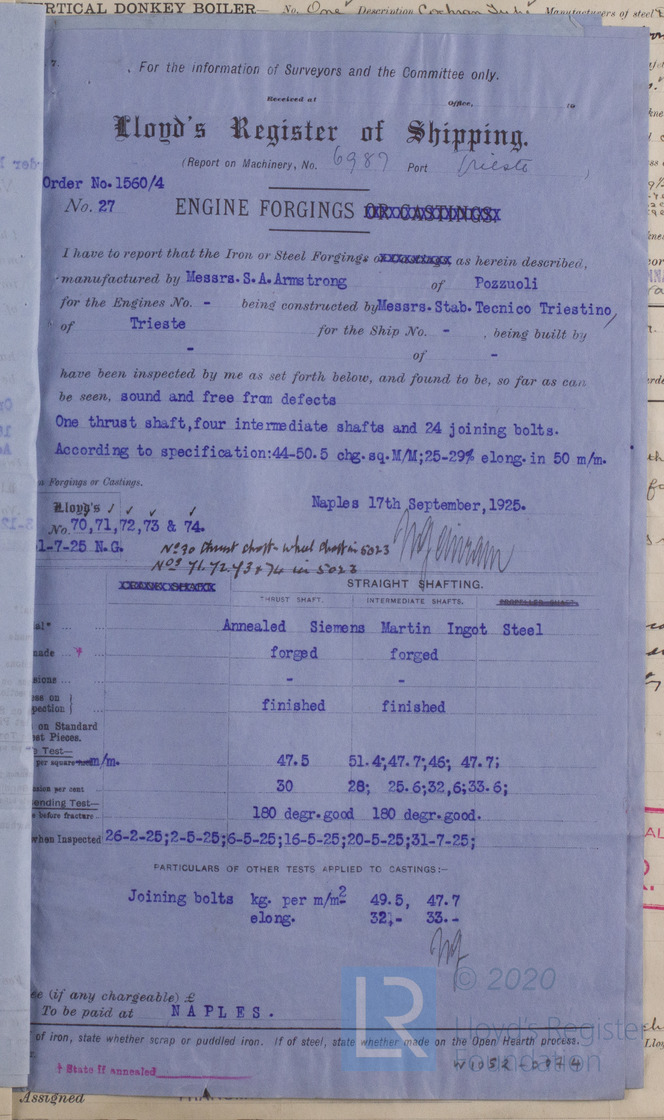 VERTICAL DONKEY BOILER— No. One Description Cochran Manufacturers of steel
For the information of Surveyors and the Committee only.
Received at Office, 19
Lloyd's Register of Shipping.
(Report on Machinery, No. 6987 Port Trieste )
Order No. 1560/4
No. 27 ENGINE FORGINGS OR CASTINGS
I have to report that the Iron or Steel Forgings as herein described,
manufactured by Messrs. S. A. Armstrong of Pozzuoli
for the Engines No. - being constructed by Messrs. Stab. Tecnico Triestino,
of Trieste for the Ship No. - , being built by
- of -
have been inspected by me as set forth below, and found to be, so far as can
be seen, sound and free from defects
One thrust shaft, four intermediate shafts and 24 joining bolts.
According to specification: 44-50.5 chg. sq. M/M; 25-29% elong. in 50 m/m.
Forgings or Castings.
Naples 17th September, 1925.
Lloyd's
No. 70, 71, 72, 73 & 74.
1-7-25 N.G.
in 5023
Nos 71.72.73 & 74 in 5023
CRANK SHAFT STRAIGHT SHAFTING.
THRUST SHAFT. INTERMEDIATE SHAFTS. PROPELLER SHAFT.
Annealed Siemens Martin Ingot Steel
made forged forged
sions - -
ess on
pection finished finished
on Standard
est Pieces.
Test—
per square m/m. 47.5 51.4; 47.7; 46; 47.7;
nsion per cent 30 28; 25.6; 32,6; 33.6;
ending Test—
before fracture 180 degr. good 180 degr. good.
when Inspected 26-2-25; 2-5-25; 6-5-25; 16-5-25; 20-5-25; 31-7-25;
PARTICULARS OF OTHER TESTS APPLIED TO CASTINGS:—
Joining bolts kg. per m/m2 49.5, 47.7
elong. 32,- 33.-
(if any chargeable) £
To be paid at NAPLES.
of iron, state whether scrap or puddled iron. If of steel, state whether made on the Open Hearth process.
† State if annealed
© 2020
LR Lloyd's Register
Foundation
W1052-0074
Assigned